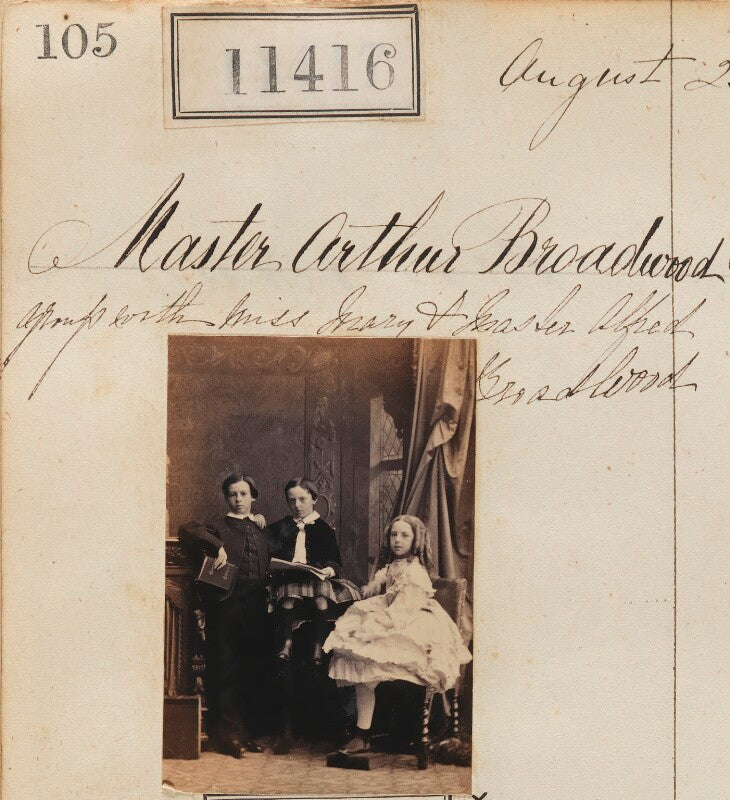 105
11416
August 2
Master Arthur Broadwood
group with Miss Mary & Master Alfred
Broadwood